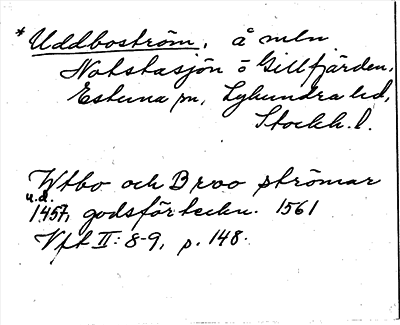 * Uddboström, å mln
Notstasjön o Gillfjärden,
Estuna sn, Lyhundra hd,
Stockh. l.
Wtbo och Broo strömar
u.d.
1457, godsförteckn. 1561
Vft II: 8-9, p. 148.